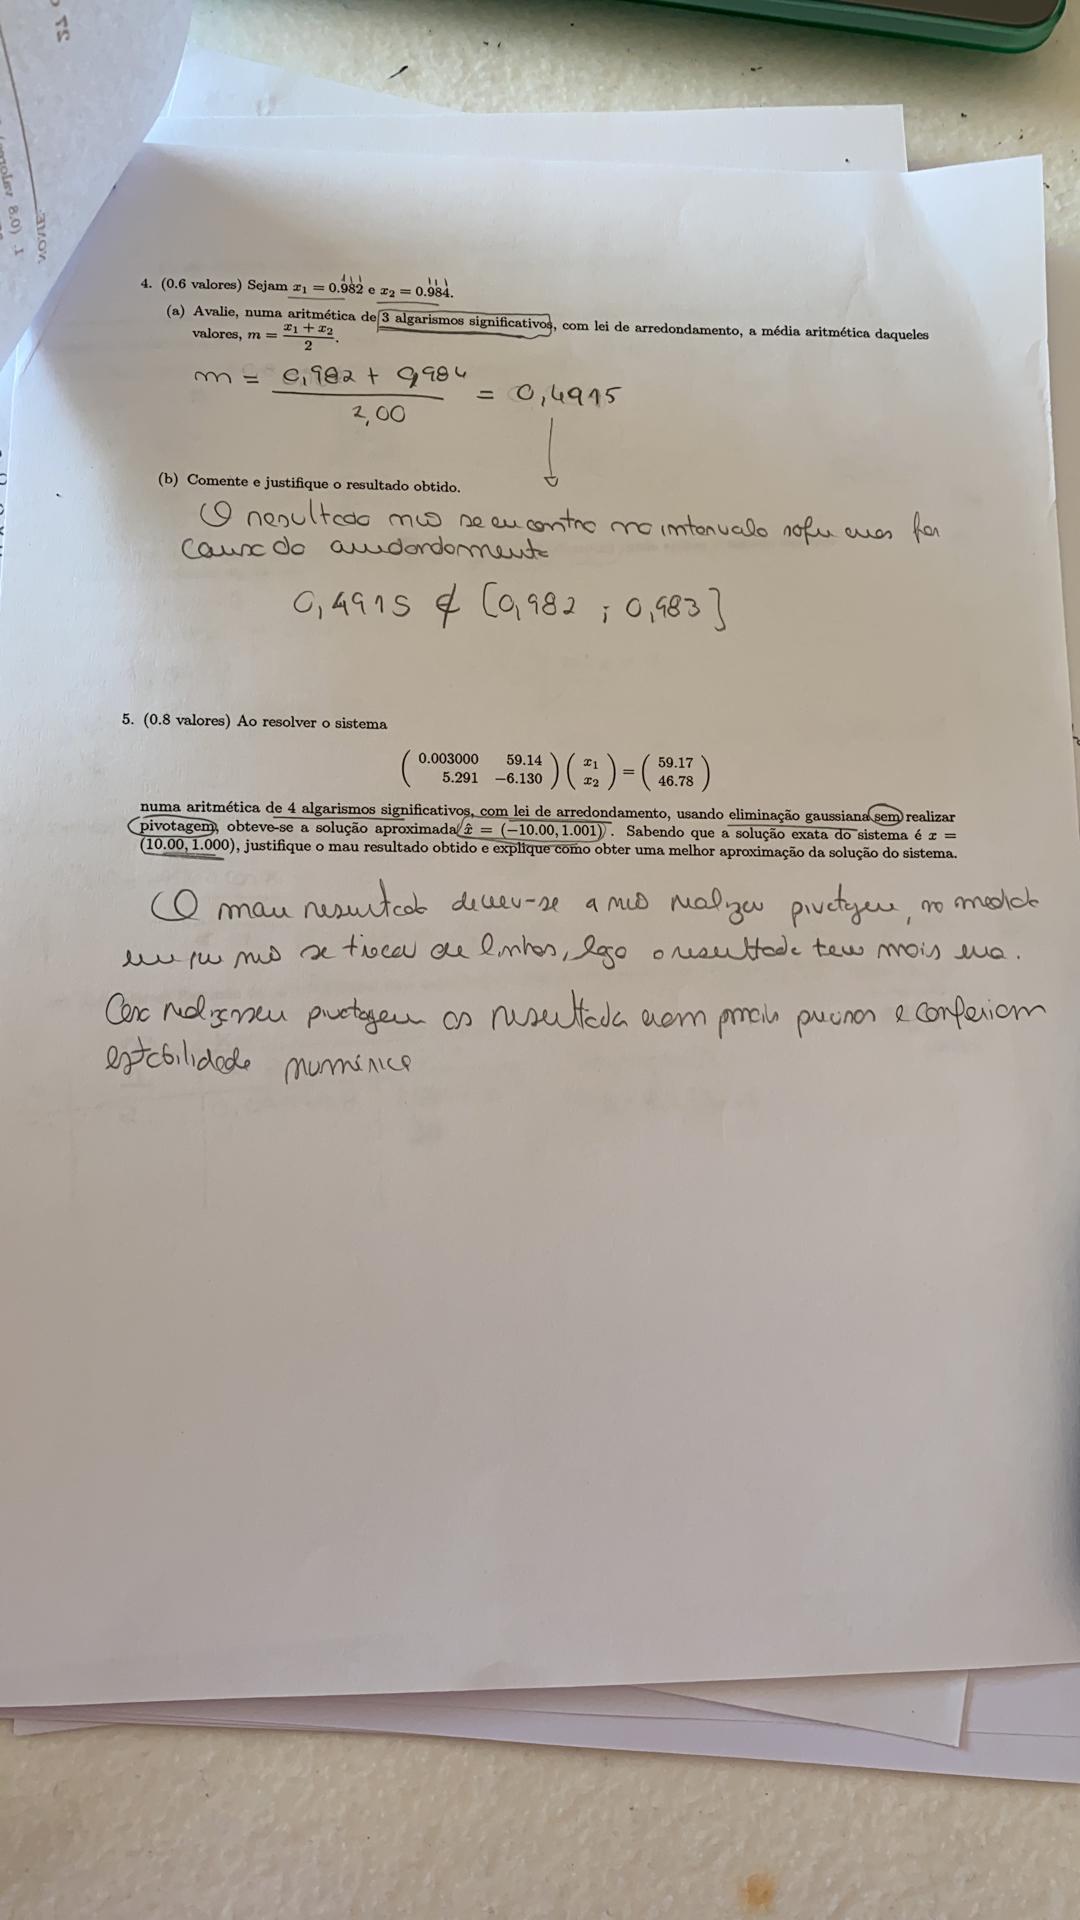 4. (0.6 valores) Sejam x₁ = 0.982 e x₂ = 0.984.
(a) Avalie, numa aritmética de 3 algarismos significativos, com lei de arredondamento, a média aritmética daqueles
valores, m = (x₁ + x₂)/2.
m = (0,982 + 0,984)/2,00 = 0,4915
(b) Comente e justifique o resultado obtido.
O resultado não se encontra no intervalo
causa do
0,4915 ∉ [0,982 ; 0,983]
5. (0.8 valores) Ao resolver o sistema
0.003000 59.14 x₁ = 59.17
5.291 −6.130 x₂ 46.78
numa aritmética de 4 algarismos significativos, com lei de arredondamento, usando eliminação gaussiana sem realizar
pivotagem, obteve-se a solução aproximada x̂ = (−10.00, 1.001). Sabendo que a solução exata do sistema é x =
(10.00, 1.000), justifique o mau resultado obtido e explique como obter uma melhor aproximação da solução do sistema.
O mau resultado deveu-se a não realizar pivotagem, na medida
em que não se troca de linhas, logo o resultado tem mais erro.
Caso realizassem pivotagem os resultados eram mais precisos e conferiam
estabilidade numérica